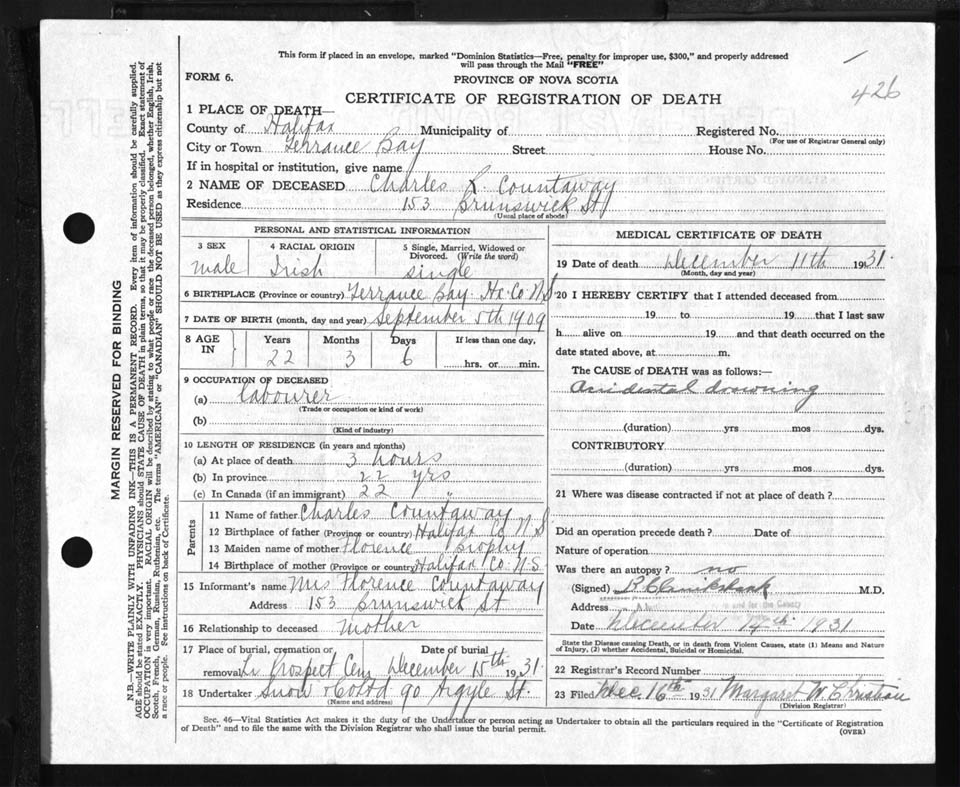 This form if placed in an envelope, marked "Dominion Statistics—Free, penalty for improper use, $300," and properly addressed
will pass through the Mail "FREE"
426
FORM 6. PROVINCE OF NOVA SCOTIA
CERTIFICATE OF REGISTRATION OF DEATH
1 PLACE OF DEATH—
County of Halifax Municipality of Registered No.
(For use of Registrar General only)
City or Town Terrance Bay Street House No.
If in hospital or institution, give name
2 NAME OF DECEASED Charles R. Countaway
Residence 153 Brunswick St
(Usual place of abode)
PERSONAL AND STATISTICAL INFORMATION
3 SEX 4 RACIAL ORIGIN 5 Single, Married, Widowed or
Divorced. (Write the word)
male Irish single
6 BIRTHPLACE (Province or country) Terrance Bay Hx. Co N.S
7 DATE OF BIRTH (month, day and year) September 5th 1909
8 AGE IN Years Months Days If less than one day,
22 3 6 hrs. or min.
9 OCCUPATION OF DECEASED
(a) labourer
(Trade or occupation or kind of work)
(b)
(Kind of industry)
10 LENGTH OF RESIDENCE (in years and months)
(a) At place of death 3 hours
(b) In province 22 yrs
(c) In Canada (if an immigrant) 22 "
Parents
11 Name of father Charles Countaway
12 Birthplace of father (Province or country) Halifax Co N.S
13 Maiden name of mother Florence Brophy
14 Birthplace of mother (Province or country) Halifax Co. N.S.
15 Informant's name Mrs Florence Countaway
Address 153 Brunswick St
16 Relationship to deceased mother
17 Place of burial, cremation or Date of burial
removal Lr Prospect Cem December 15th 1931
18 Undertaker Snow & Co Ltd 90 Argyle St.
(Name and address)
MEDICAL CERTIFICATE OF DEATH
19 Date of death December 11th 1931
(Month, day and year)
20 I HEREBY CERTIFY that I attended deceased from
19 to 19 that I last saw
h alive on 19 and that death occurred on the
date stated above, at m.
The CAUSE of DEATH was as follows:—
Accidental drowning
(duration) yrs mos dys.
CONTRIBUTORY
(duration) yrs mos dys.
21 Where was disease contracted if not at place of death?
Did an operation precede death? Date of
Nature of operation
Was there an autopsy? no
(Signed) M.D.
Address and for the County
Date December 14th 1931
State the Disease causing Death, or in death from Violent Causes, state (1) Means and Nature
of Injury, (2) whether Accidental, Suicidal or Homicidal.
22 Registrar's Record Number
23 Filed Dec. 16th 1931 Margaret W. Christian
(Division Registrar)
Sec. 46—Vital Statistics Act makes it the duty of the Undertaker or person acting as Undertaker to obtain all the particulars required in the "Certificate of Registration
of Death" and to file the same with the Division Registrar who shall issue the burial permit.
(OVER)
MARGIN RESERVED FOR BINDING
N.B.—WRITE PLAINLY WITH UNFADING INK—THIS IS A PERMANENT RECORD. Every item of information should be carefully supplied.
AGE should be stated EXACTLY. PHYSICIANS should STATE CAUSE OF DEATH in plain terms, so that it may be properly classified. Exact statement of
OCCUPATION is very important. RACIAL ORIGIN will be described by stating to what people or race the deceased person belonged, whether English, Irish,
Scotch, French, German, Russian, Ruthenian, etc. The terms "AMERICAN" or "CANADIAN" SHOULD NOT BE USED as they express citizenship but not
a race or people. See instructions on back of Certificate.